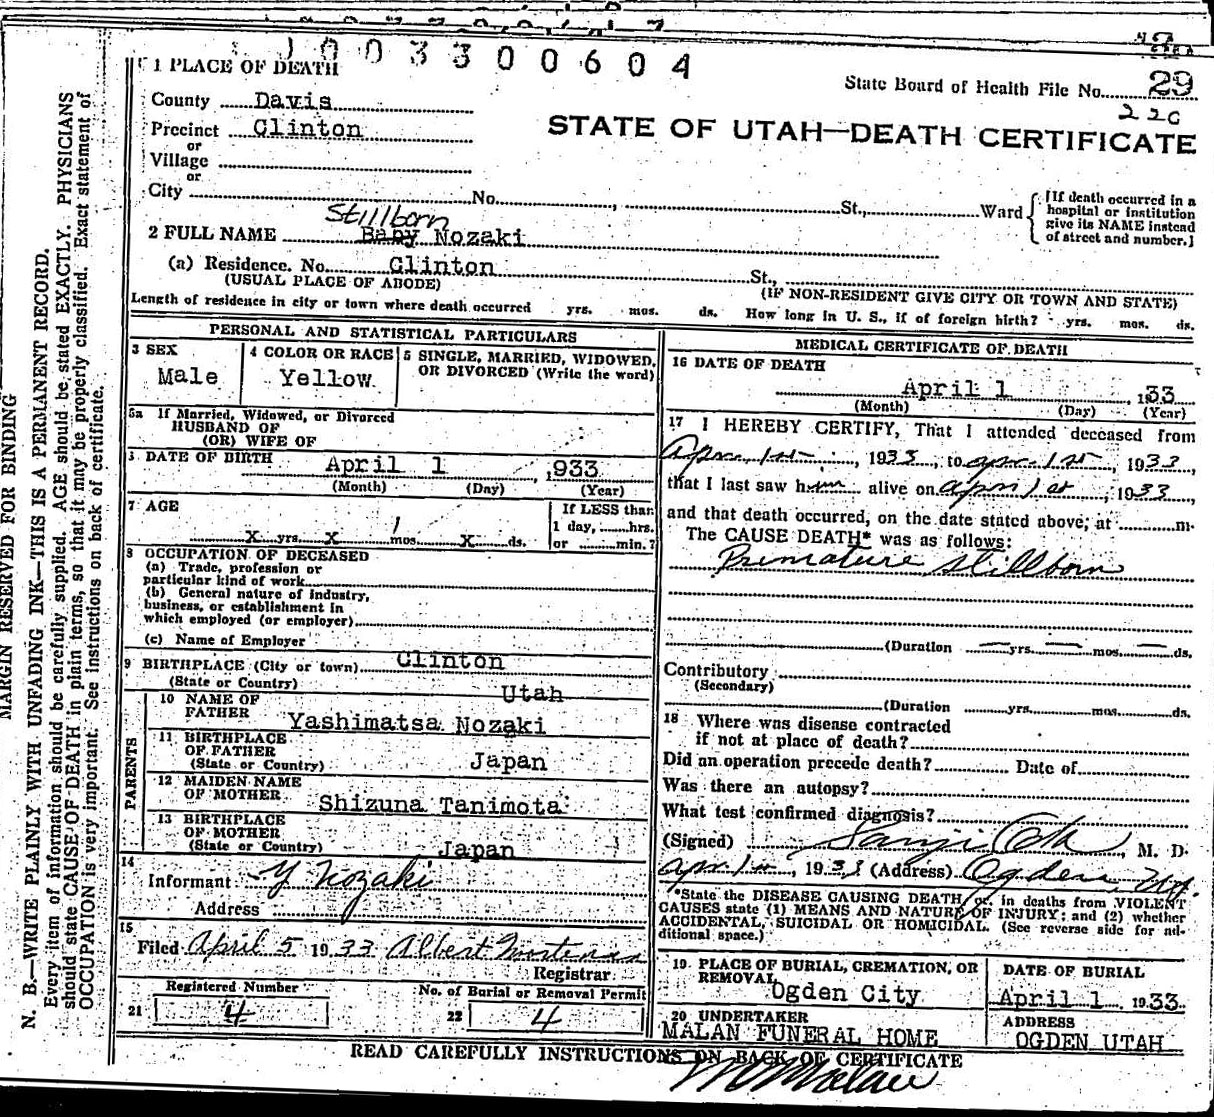 1003300604
1 PLACE OF DEATH
State Board of Health File No. 29
220
County Davis
Precinct Clinton
or
Village
or
City No. , St., Ward
STATE OF UTAH—DEATH CERTIFICATE
[If death occurred in a
hospital or institution
give its NAME instead
of street and number.]
Stillborn
2 FULL NAME Baby Nozaki
(a) Residence. No. Clinton St.,
(USUAL PLACE OF ABODE) (IF NON-RESIDENT GIVE CITY OR TOWN AND STATE)
Length of residence in city or town where death occurred yrs. mos. ds. How long in U. S., if of foreign birth? yrs. mos. ds.
PERSONAL AND STATISTICAL PARTICULARS
3 SEX
Male
4 COLOR OR RACE
Yellow
5 SINGLE, MARRIED, WIDOWED,
OR DIVORCED (Write the word)
5a If Married, Widowed, or Divorced
HUSBAND OF
(OR) WIFE OF
DATE OF BIRTH April 1 , 1933
(Month) (Day) (Year)
7 AGE
X yrs. X mos. X ds.
If LESS than
1 day, hrs.
or min.?
8 OCCUPATION OF DECEASED
(a) Trade, profession or
particular kind of work
(b) General nature of industry,
business, or establishment in
which employed (or employer)
(c) Name of Employer
9 BIRTHPLACE (City or town) Clinton
(State or Country) Utah
PARENTS
10 NAME OF
FATHER Yashimatsa Nozaki
11 BIRTHPLACE
OF FATHER
(State or Country) Japan
12 MAIDEN NAME
OF MOTHER Shizuna Tanimota
13 BIRTHPLACE
OF MOTHER
(State or Country) Japan
14
Informant Y Nozaki
Address
15
Filed April 5 1933 Albert
Registrar
21 Registered Number
4
22 No. of Burial or Removal Permit
4
MEDICAL CERTIFICATE OF DEATH
16 DATE OF DEATH
April 1 , 1933
(Month) (Day) (Year)
17 I HEREBY CERTIFY, That I attended deceased from
Apr. 1st , 1933, to apr. 1st , 1933,
that I last saw him alive on apr 1st , 1933,
and that death occurred, on the date stated above, at m.
The CAUSE DEATH* was as follows:
Premature stillborn
(Duration — yrs. — mos. — ds.
Contributory
(Secondary)
(Duration yrs. mos. ds.
18 Where was disease contracted
if not at place of death?
Did an operation precede death? Date of
Was there an autopsy?
What test confirmed diagnosis?
(Signed) , M. D.
apr 1st , 193 (Address) Ogden, Ut.
*State the DISEASE CAUSING DEATH or, in deaths from VIOLENT
CAUSES state (1) MEANS AND NATURE OF INJURY; and (2) whether
ACCIDENTAL, SUICIDAL OR HOMICIDAL. (See reverse side for ad-
ditional space.)
19 PLACE OF BURIAL, CREMATION, OR
REMOVAL
Ogden City
DATE OF BURIAL
April 1 1933
20 UNDERTAKER
MALAN FUNERAL HOME
ADDRESS
OGDEN UTAH
READ CAREFULLY INSTRUCTIONS ON BACK OF CERTIFICATE
Malan
MARGIN RESERVED FOR BINDING
N. B.—WRITE PLAINLY WITH UNFADING INK—THIS IS A PERMANENT RECORD.
Every item of information should be carefully supplied. AGE should be stated EXACTLY. PHYSICIANS
should state CAUSE OF DEATH in plain terms, so that it may be properly classified. Exact statement of
OCCUPATION is very important. See instructions on back of certificate.